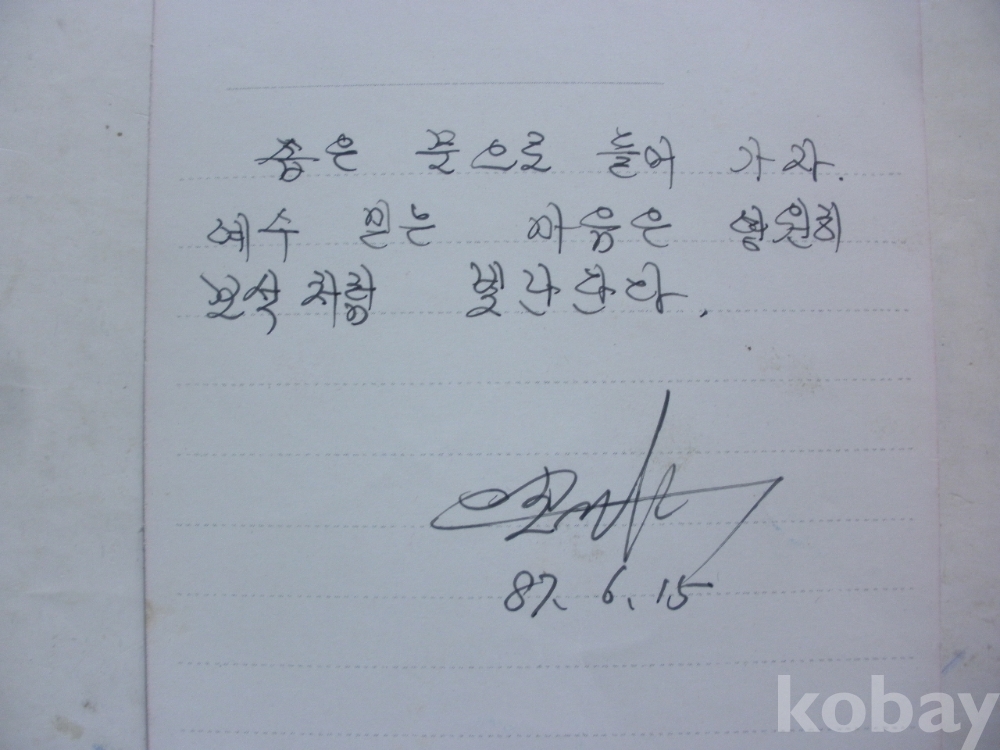 좁은 문으로 들어 가자.
예수 믿는 마음은 영원히
보석처럼 빛난단다.
87. 6. 15
kobay